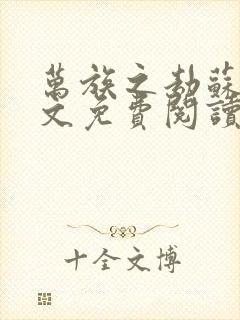 萬族之劫蘇
文免費閱讀
十全文博